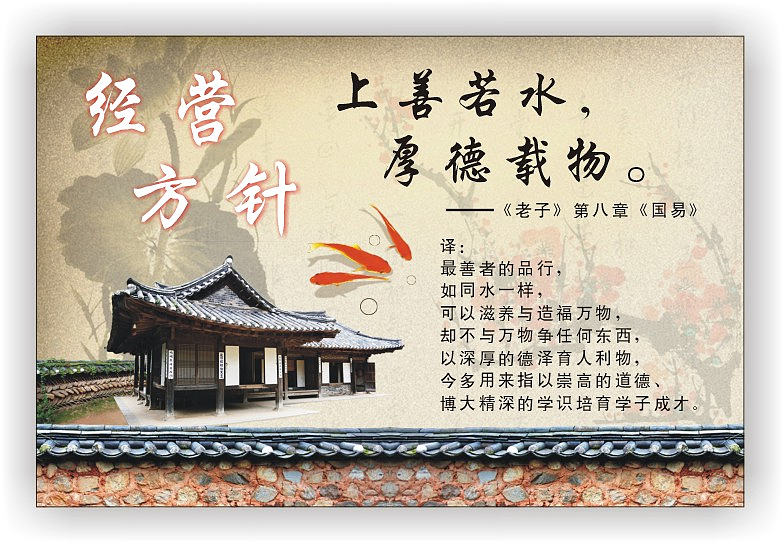 经营
方针
上善若水，
厚德载物。
——《老子》第八章《国易》
译：
最善者的品行，
如同水一样，
可以滋养与造福万物，
却不与万物争任何东西，
以深厚的德泽育人利物，
今多用来指以崇高的道德、
博大精深的学识培育学子成才。